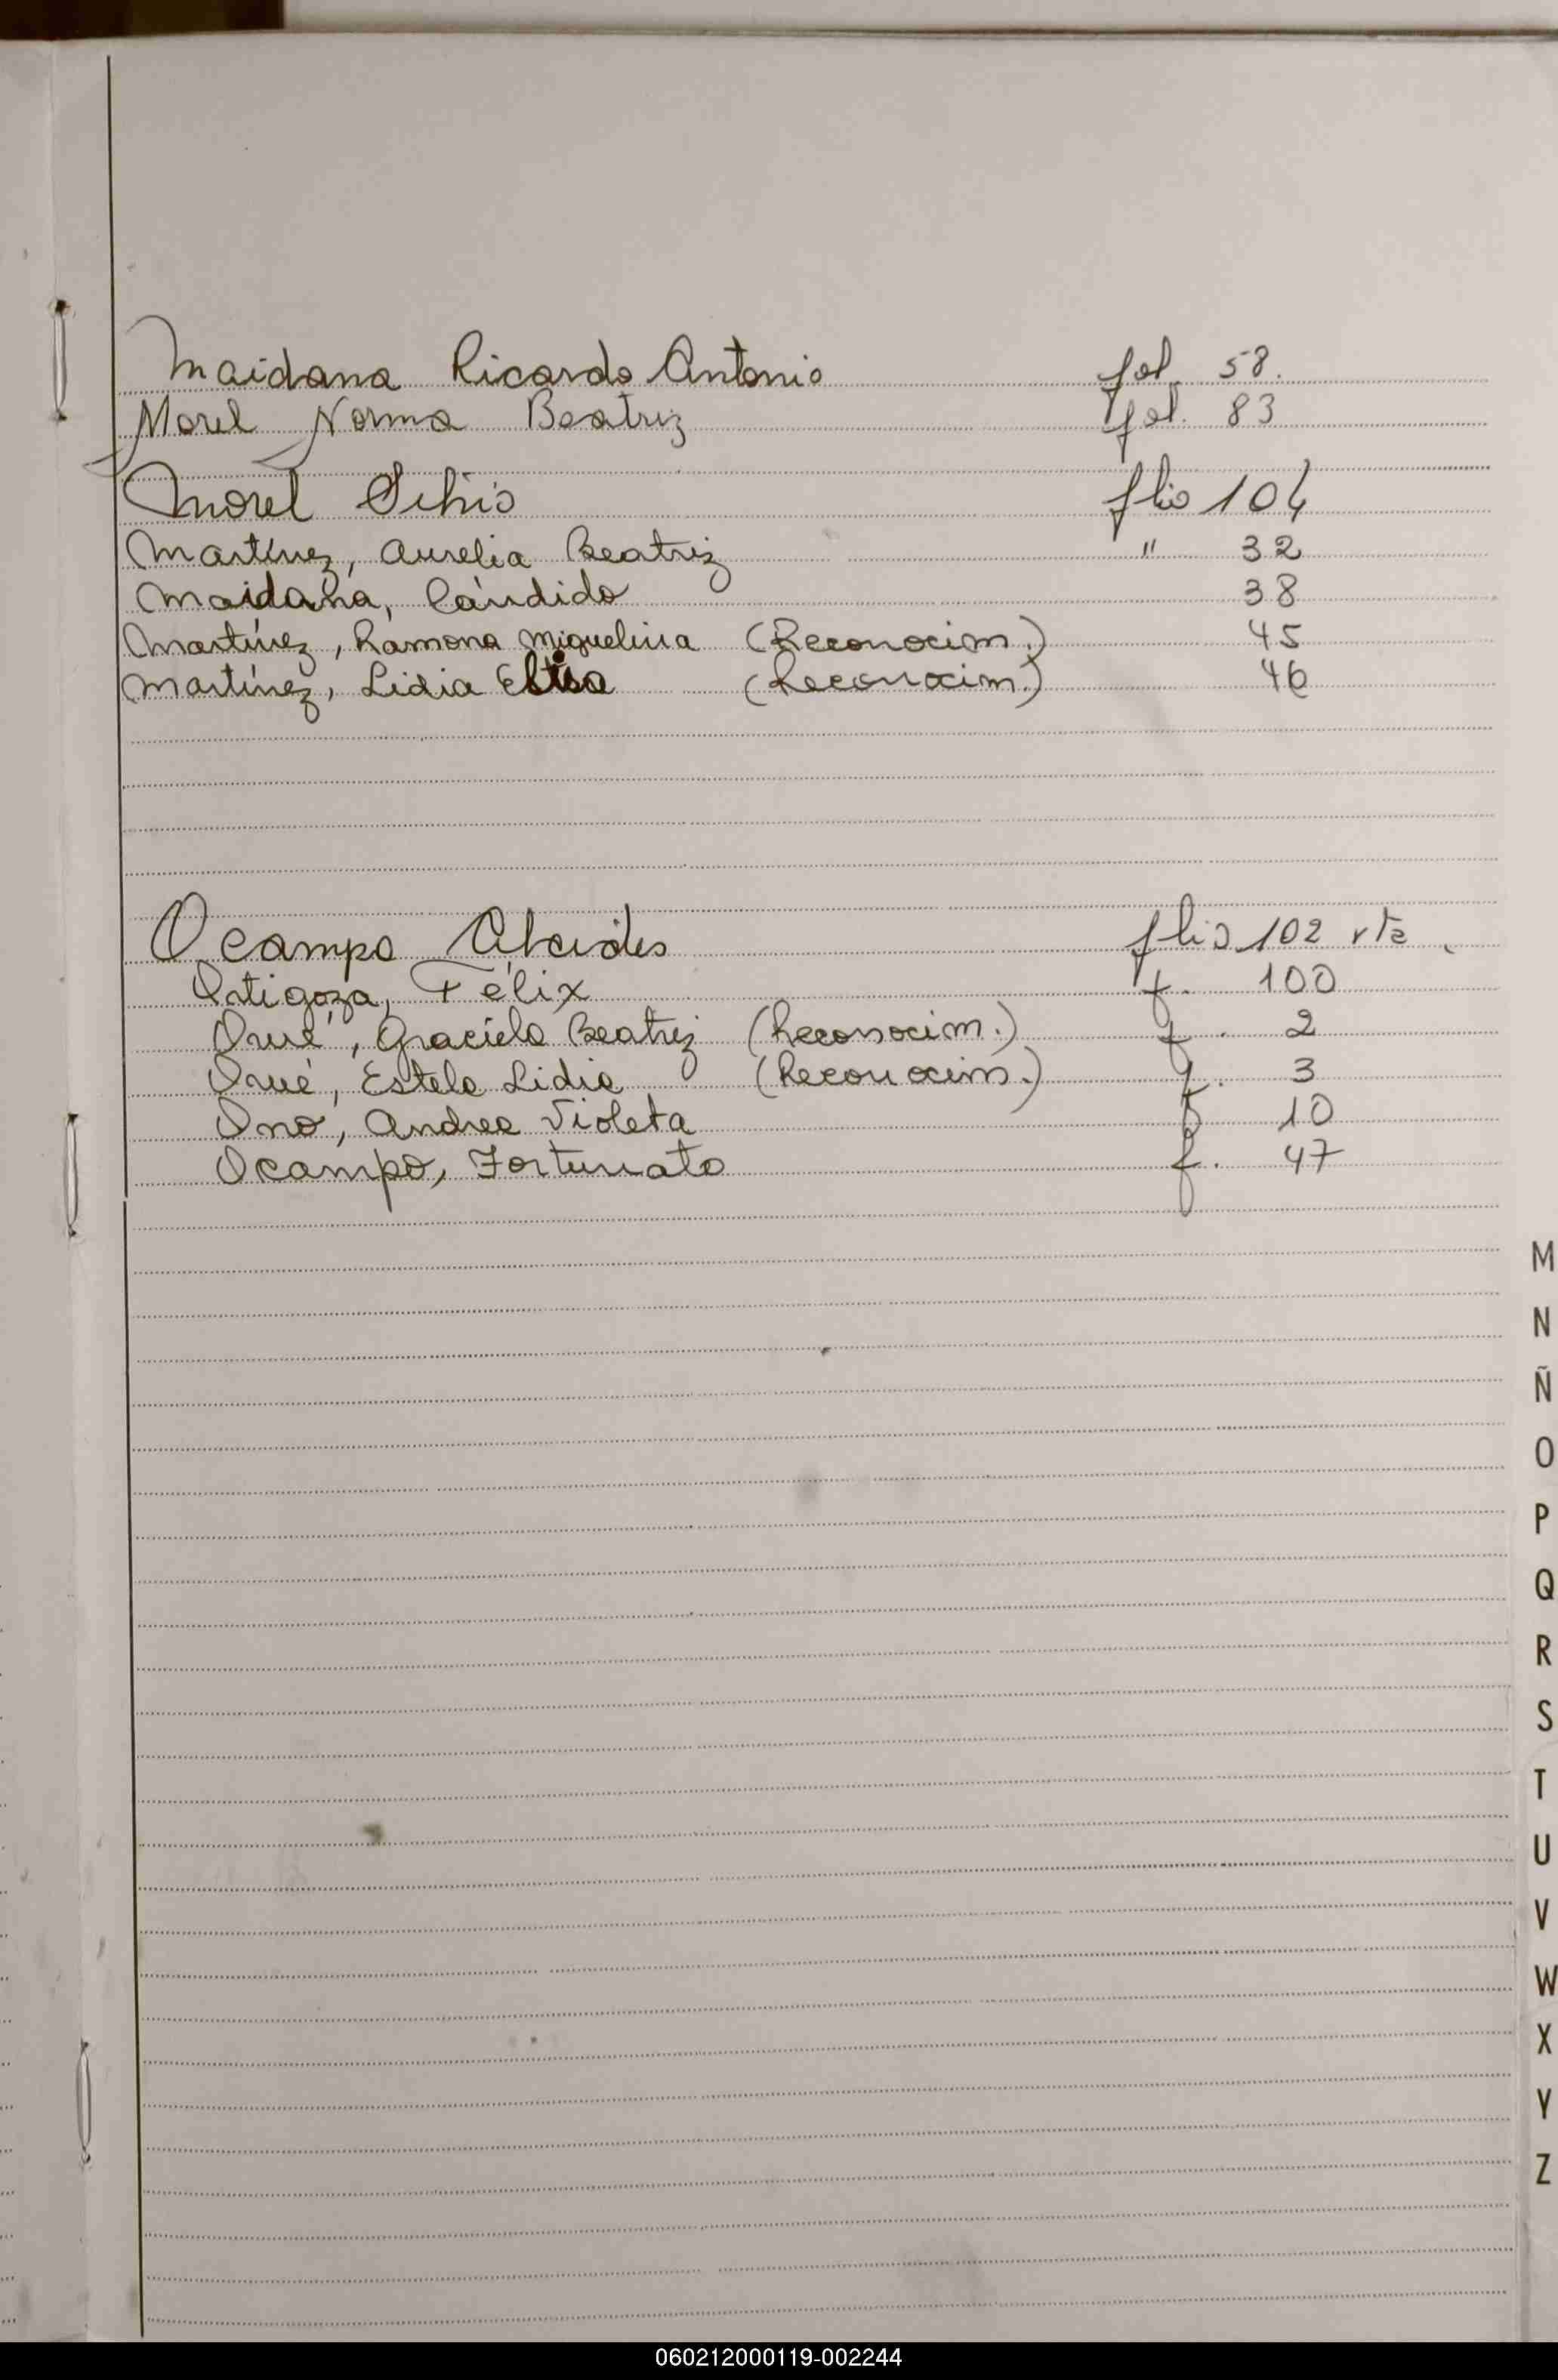 Maidana Ricardo Antonio fol. 58.
Morel Norma Beatriz fol. 83
Morel Silvio flio 104
Martínez, Aurelia Beatriz " 32
Maidana, Cándido 38
Martínez, Ramona Miguelina (Reconocim.) 45
Martínez, Lidia Elisa (Reconocim.) 46
Ocampo Alcides flio 102 vta
Ortigoza, Félix f. 100
Orué, Graciela Beatriz (Reconocim.) f. 2
Orué, Estela Lidia (Reconocim.) f. 3
Ono, Andrea Violeta f 10
Ocampo, Fortunato f. 47
M
N
Ñ
O
P
Q
R
S
T
U
V
W
X
Y
Z
060212000119-002244